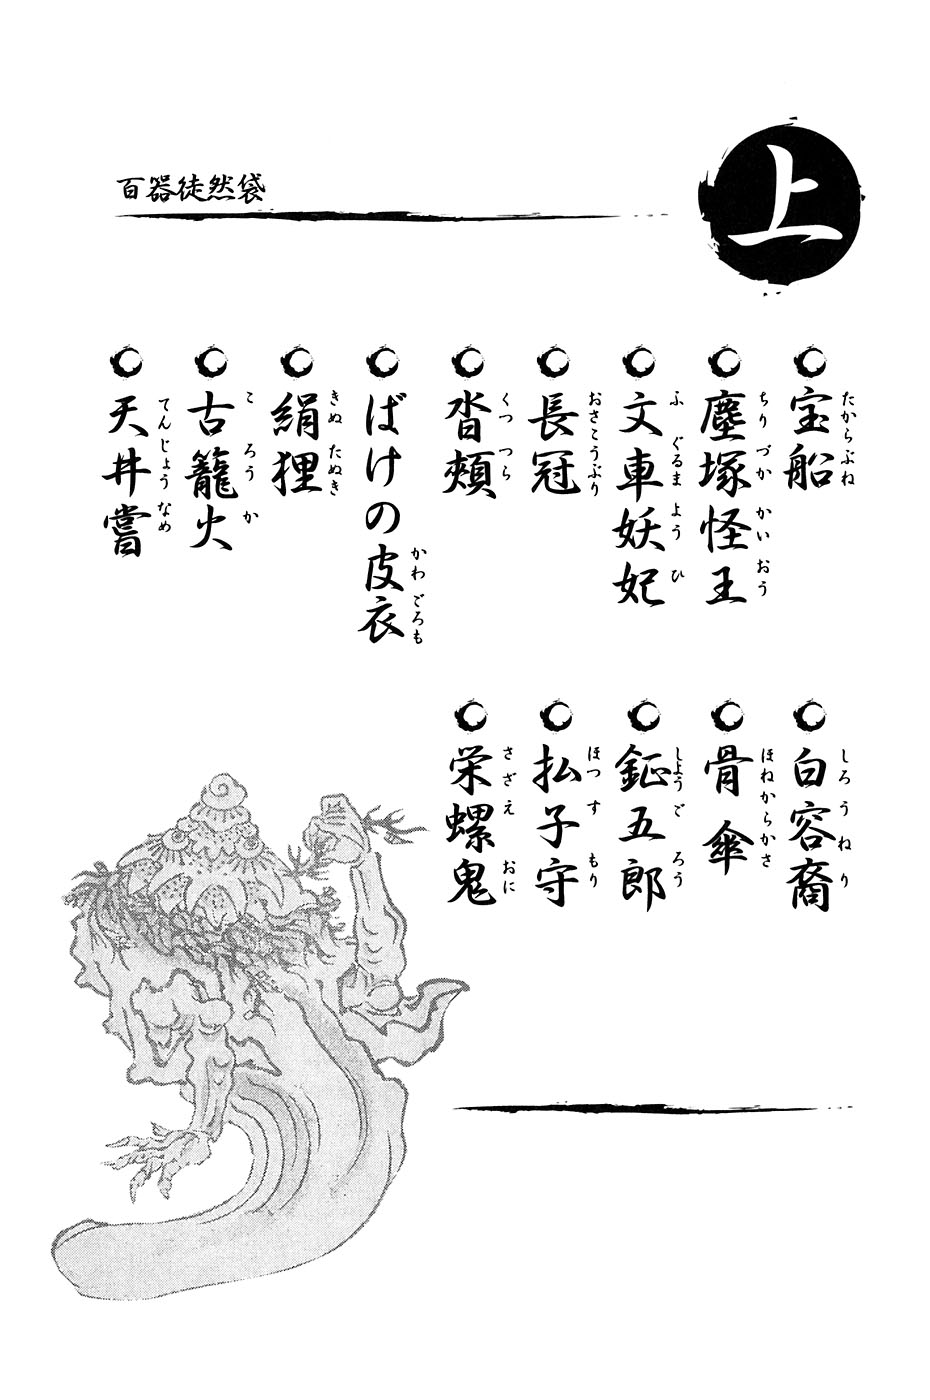 上
百器徒然袋
宝船
たからぶね
塵塚怪王
ちりづかかいおう
文車妖妃
ふぐるまようひ
長冠
おさこうぶり
沓頬
くつつら
ばけの皮衣
かわごろも
絹狸
きぬたぬき
古籠火
ころうか
天井嘗
てんじょうなめ
白容裔
しろうねり
骨傘
ほねからかさ
鉦五郎
しょうごろう
払子守
ほつすもり
栄螺鬼
さざえおに